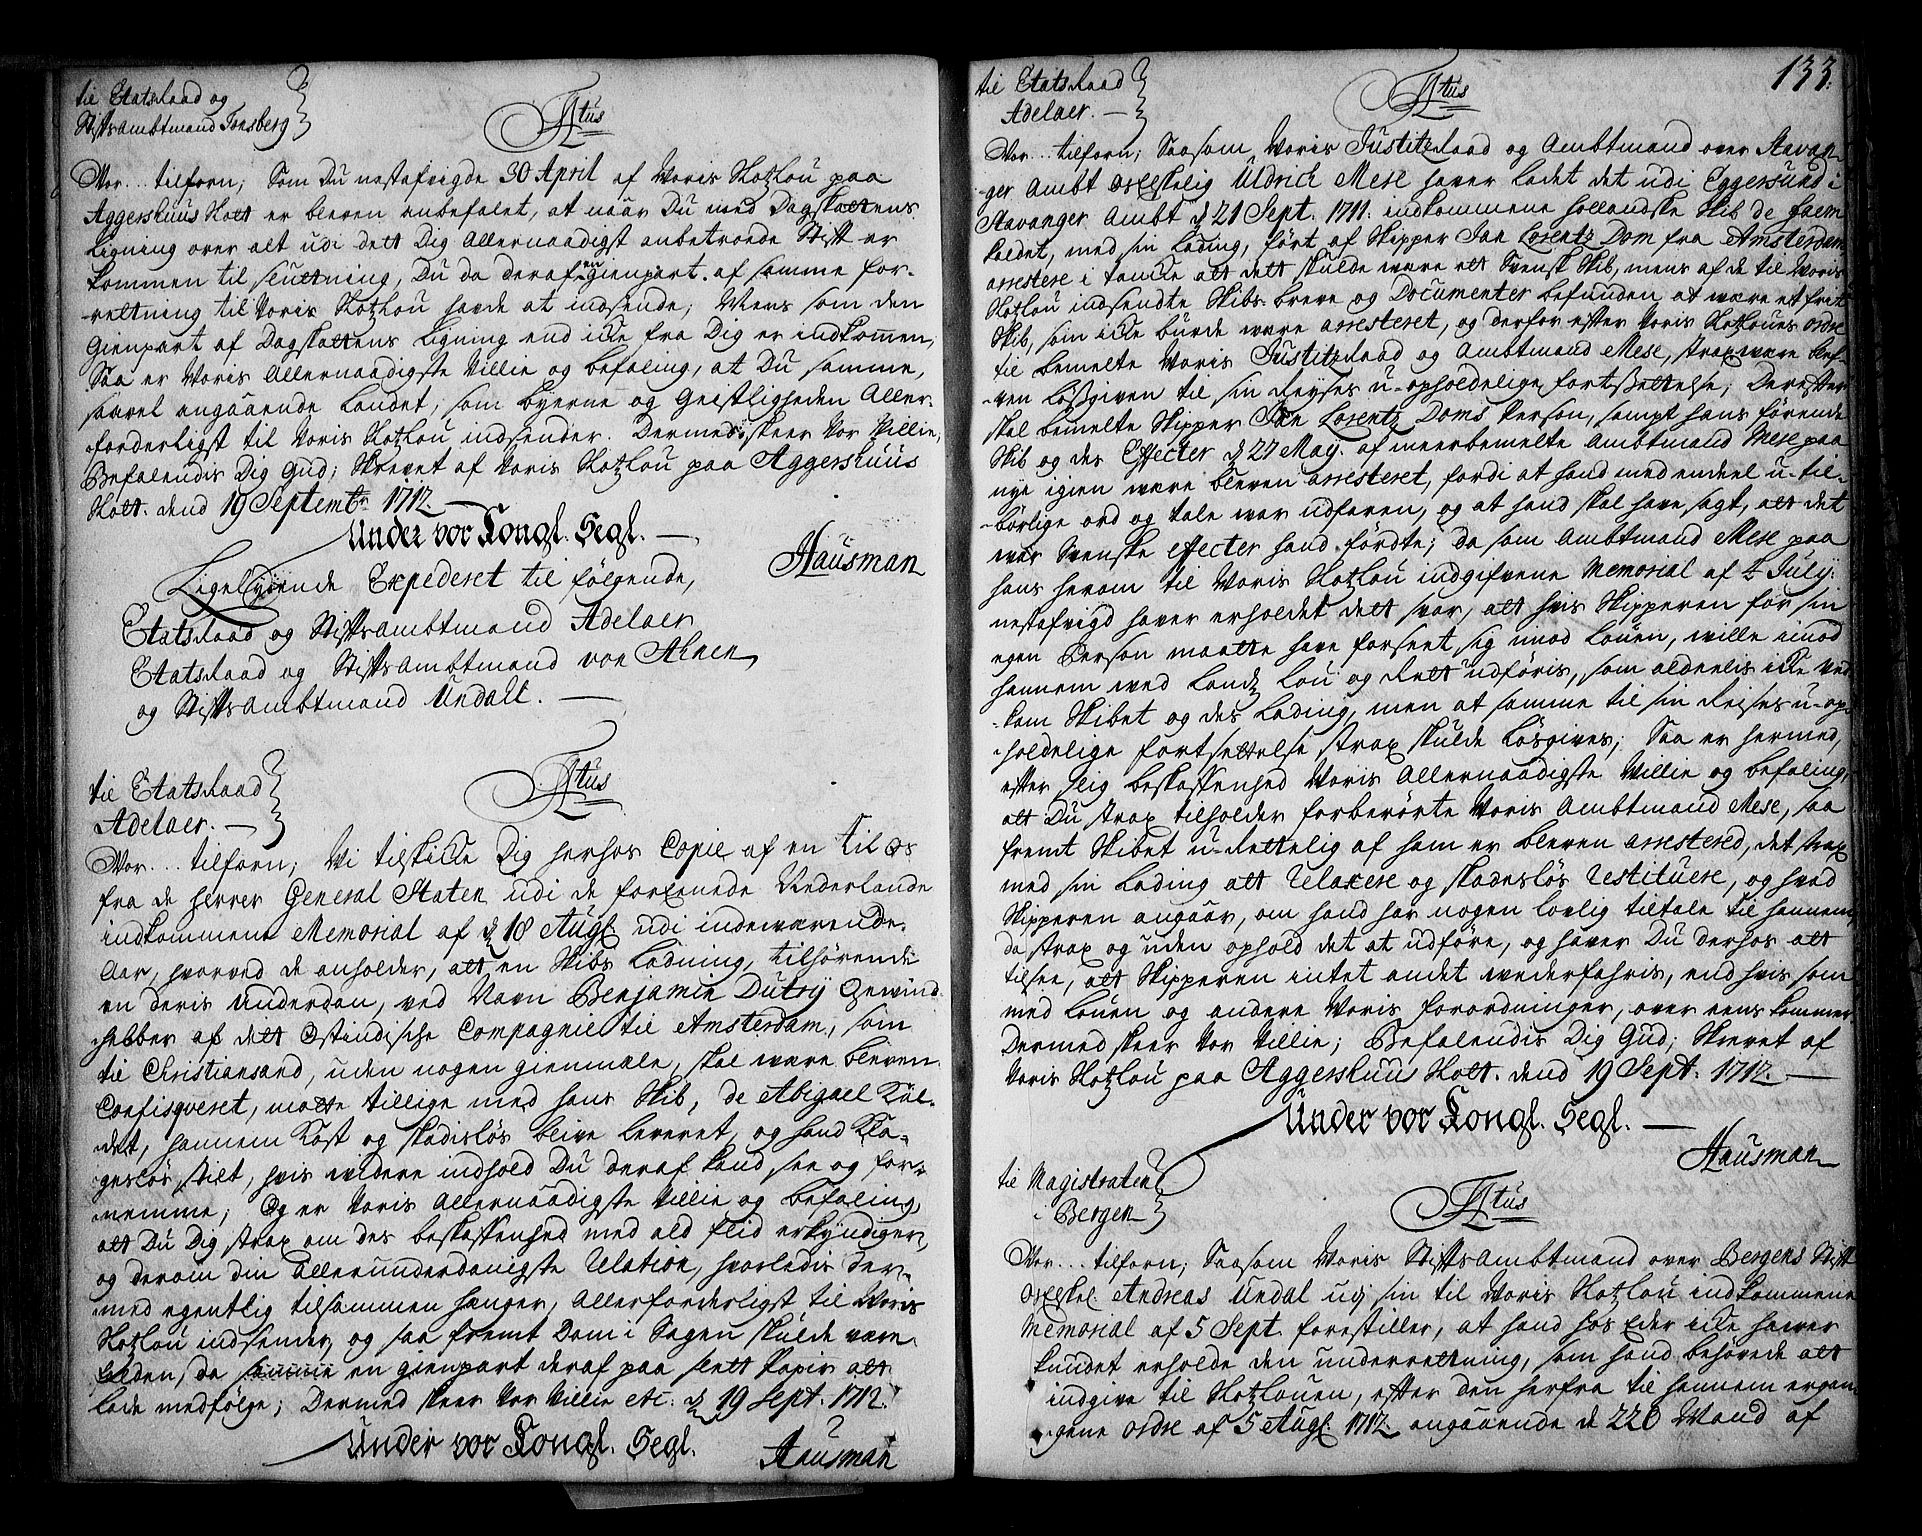 til Etatsraad og
StiftsAmbtmand Tonsberg
F4tus
Vor... tilforn; Som Du nestafvigde 30 April af Voris Slotzlou paa
Aggershuus Slott er bleven anbefalet, at naar Du med Dagskattens
Ligning over alt udi dett Dig Allernaadigst anbetroede Stift er
kommen til slutning, Du da deraf en gienpart af samme for-
-retning til Voris Slotzlou hafde at indsende; Mens som den
Gienpart af Dagskattens Ligning end icke fra Dig er indkommen,
Saa er Voris Allernaadigste Villie og befaling, at Du samme,
saavel angaaende Landet, som byerne og Geistligheden Aller-
forderligst til Voris Slotzlou indsender. Dermed skeer Vor Villie,
Befalendis Dig Gud; Skrevet af Voris Slotzlou paa Aggershuus
Slott. dend 19 Septembr 1712.
Under vor Kongl. Segl.
Hausman
Ligelydende Expederet til følgende,
Etatsraad og StiftsAmbtmand Adelaer
Etatsraad og StiftsAmbtmand von Ahnen
og StiftsAmbtmand Undall.
til Etatsraad
Adelaer.
F4tus
Vor... tilforn; Vi tilskicke Dig herhos Copie af en til os
fra de herrer General Staten udi de foreenede Nederlande
indkommene Memorial af d 18 Augl udi indeværende
Aar, hvorved de anholder, att en Skibs Ladning, tilhørende
en deris Underdan, ved Navn Benjamin Dutry Bewind-
hebber af dett Ostindische Compagnie til Amsterdam, som
til Christiansand, uden nogen gienmæle, skal være bleven
Confisqveret, motte tillige med hans Skib, de Abigael Kal-
det, hannem Kost og skadisløs blive leveret, og hand Kla-
gesløs stilet, hvis videre indhold Du deraf kand see og for-
nemme; Og er Voris Allernaadigste Villie og befaling,
att Du Dig strax om des beskaffenhed med ald flid erkyndiger,
og derom din allerunderdanigste Relation, hvorledis der-
med egentlig tilsammen hænger, Allerforderligst til Voris
Slotzlou indsender, og saa fremt Dom i Sagen skulde være
Falden, da en gienpart deraf paa slett Papir att
lade medfølge; Dermed skeer Vor Villie etc: d 19 Sept. 1712.
Under vor Kongl. Segl.
Hausman
133.
til Etatsraad
Adelaer.
F4tus
Vor... tilforn; Saasom Voris Justitzraad og Ambtmand over Stavan-
-ger Ambt Os elskelig Uldrich Mese haver ladet det udi Eggersund i
Stavanger Ambt d 21 Sept. 1711. indkommene hollandske Skib de faem
kaldet, med sin Lading, ført af Skipper Jan Lorentz Dom fra Amsterdam
arrestere i tancke att dett skulde være ett Svensk Skib, mens af de til Voris
Slotzlou indsendte Skibs-breve og Documenter befunden at være ett frit
Skib, som icke burde være arresteret, og derfor efter Voris Slotzloues ordre
til bemelte Voris Justitzraad og Ambtmand Mese, strax være blef-
-ven Løsgiven til sin Reyses u-opholdelige fortsettelse; Derefter
skal bemelte Skipper Jan Lorentz Doms Person, sampt hans førende
Skib og des Effecter d 27 May. af meerbemelte Ambtmand Mese paa
nye igien være bleven arresteret, fordi at hand med endeel u-til-
-børlige ord og tale var udfaren, og at hand skal have sagt, att det
var Svenske effecter hand førdte; da som Ambtmand Mese paa
hans herom til Voris Slotzlou indgifvene Memorial af 4 July:
nestafvigd haver erholdet dett svar, att hvis Skipperen for sin
egen Person maatte have forseet sig imod Louen, wille imod
hannem ved Landz Lou og Rett udføris, som aldeelis icke ved-
-kom Skibet og des Lading, men at samme til sin Reises u-op-
-holdelige fortsettelse strax skulde Løsgives; Saa er hermed,
efter slig beskaffenhed Voris Allernaadigste Villie og befaling,
att Du strax tilholder forberørte Voris Ambtmand Mese, saa
fremt Skibet u-Rettelig af ham er bleven arrestered, det strax
med sin Lading att Relaxere og skadesløs Restituere, og hvad
Skipperen angaar, om hand har nogen lovlig tiltale til hannem,
da strax og uden ophold det at udføre, og haver Du derhos att
tilsee, att Skipperen intet andet wederfahris, end hvis som
med Louen og andere Voris forordninger, over eens kommer.
Dermed skeer Vor Villie; Befalendis Dig Gud; Skrevet af
Voris Slotzlou paa Aggershuus Slott. dend 19 Sept. 1712.
Under vor Kongl. Segl.
Hausman
til Magistraten
i Bergen
F4tus
Vor... tilforn; Saasom Voris StiftsAmbtmand over Bergens Stift
Os elskel: Andreas Undal udj sin til Voris Slotzlou indkommene
Memorial af 5 Sept. forestiller, at hand hos Eder icke haver
kundet erholde den underretning, som hand behøvede att
indgive til Slotzlouen, efter den herfra til hannem ergan-
-gene ordre af 5 Augl. 1712 angaaende d 226 Mand af